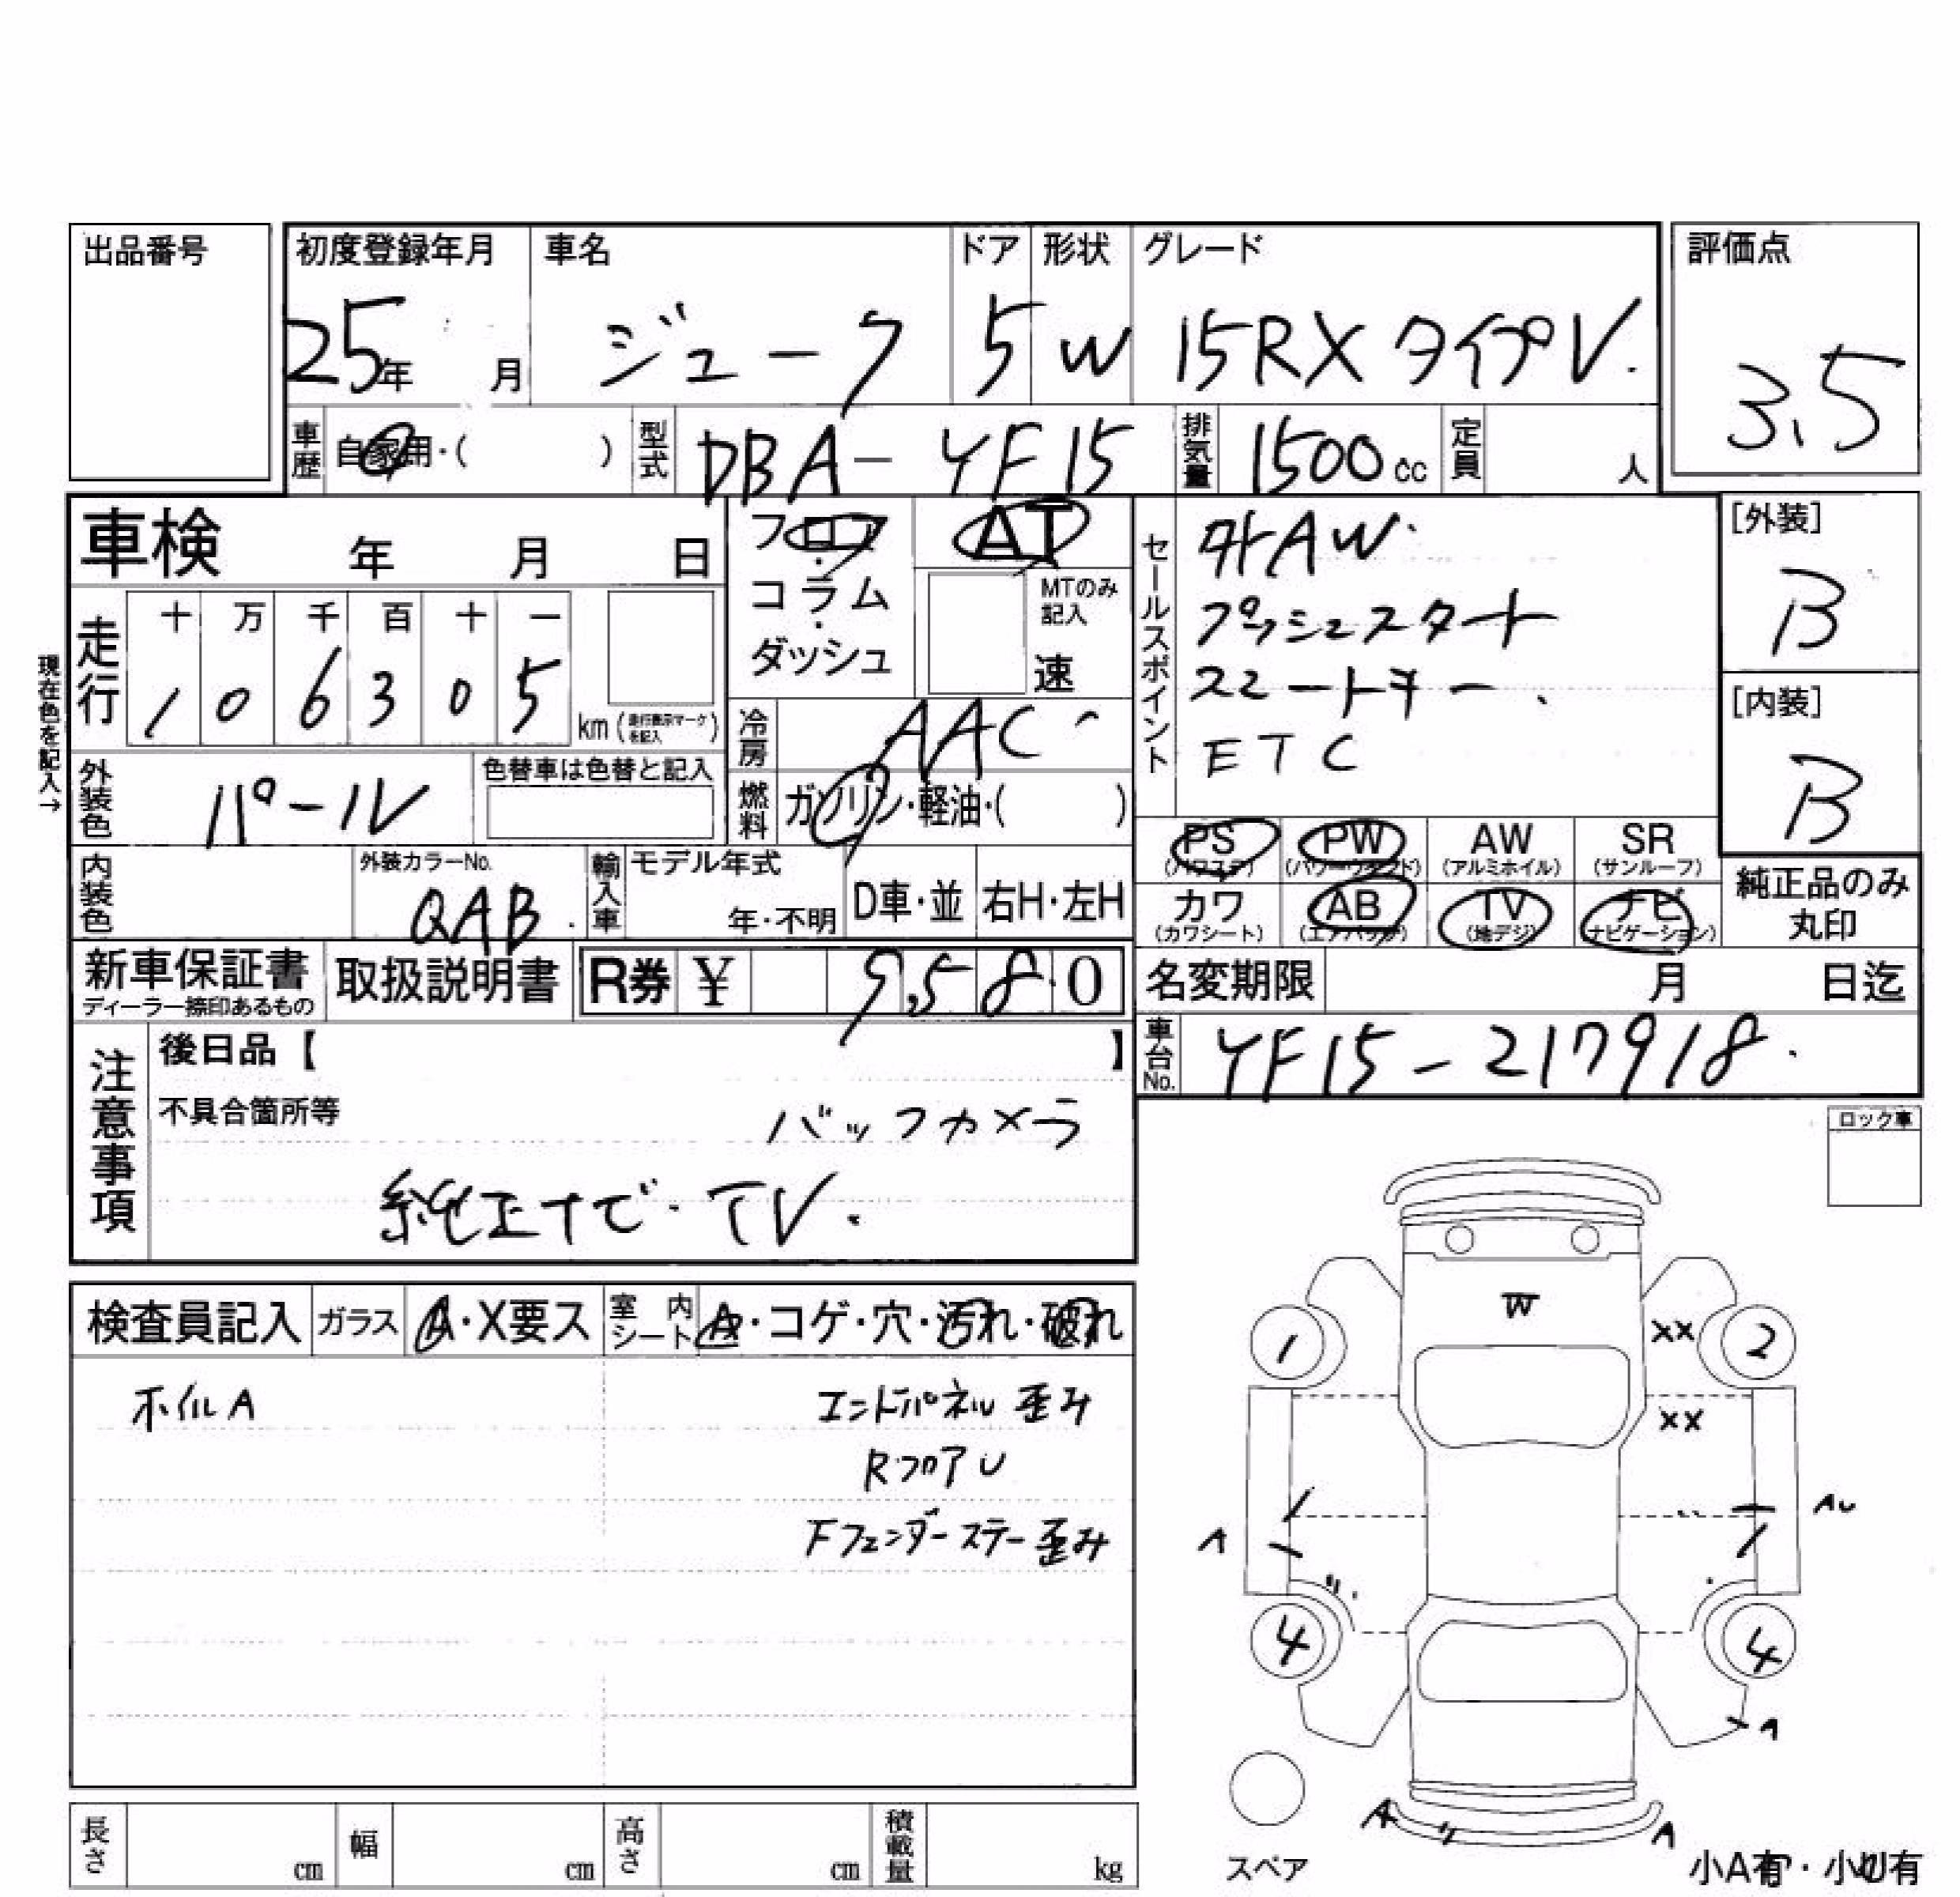 出品番号
初度登録年月 車名 ドア 形状 グレード 評価点
25年 月 ジューク 5 W 15RX タイプV. 3.5
車歴 自家用・( ) 型式 DBA-YF15 排気量 1500cc 定員 人
車検 年 月 日
フロア・コラム・ダッシュ
AT
MTのみ記入
速
セールスポイント
外AW.
プッシュスタート
スマートキー.
ETC
[外装]
B
[内装]
B
現在色を記入→
走行 十 万 千 百 十 一
1 0 6 3 0 5 km (走行表示マークを記入)
冷房 AAC
外装色 パール 色替車は色替と記入
燃料 ガソリン・軽油・( )
PS (パワステ) PW (パワーウインド) AW (アルミホイル) SR (サンルーフ)
カワ (カワシート) AB (エアバッグ) TV (地デジ) ナビ (ナビゲーション)
純正品のみ丸印
内装色 外装カラーNo. QAB. 輸入車 モデル年式 年・不明 D車・並 右H・左H
新車保証書 ディーラー捺印あるもの 取扱説明書 R券 ¥ 9,580
名変期限 月 日迄
車台No. YF15-217918.
注意事項
後日品【 】
不具合箇所等 バックカメラ
純正ナビ・TV.
ロック車
検査員記入 ガラス A・X要ス 室内シート A・コゲ・穴・汚れ・破れ
ホイルA エンドパネル 歪み
RフロアU
Fフェンダーステー歪み
W
1 XX 2
XX
AU
A
4 4
A
A A
スペア
小A有・小U有
長さ cm 幅 cm 高さ cm 積載量 kg